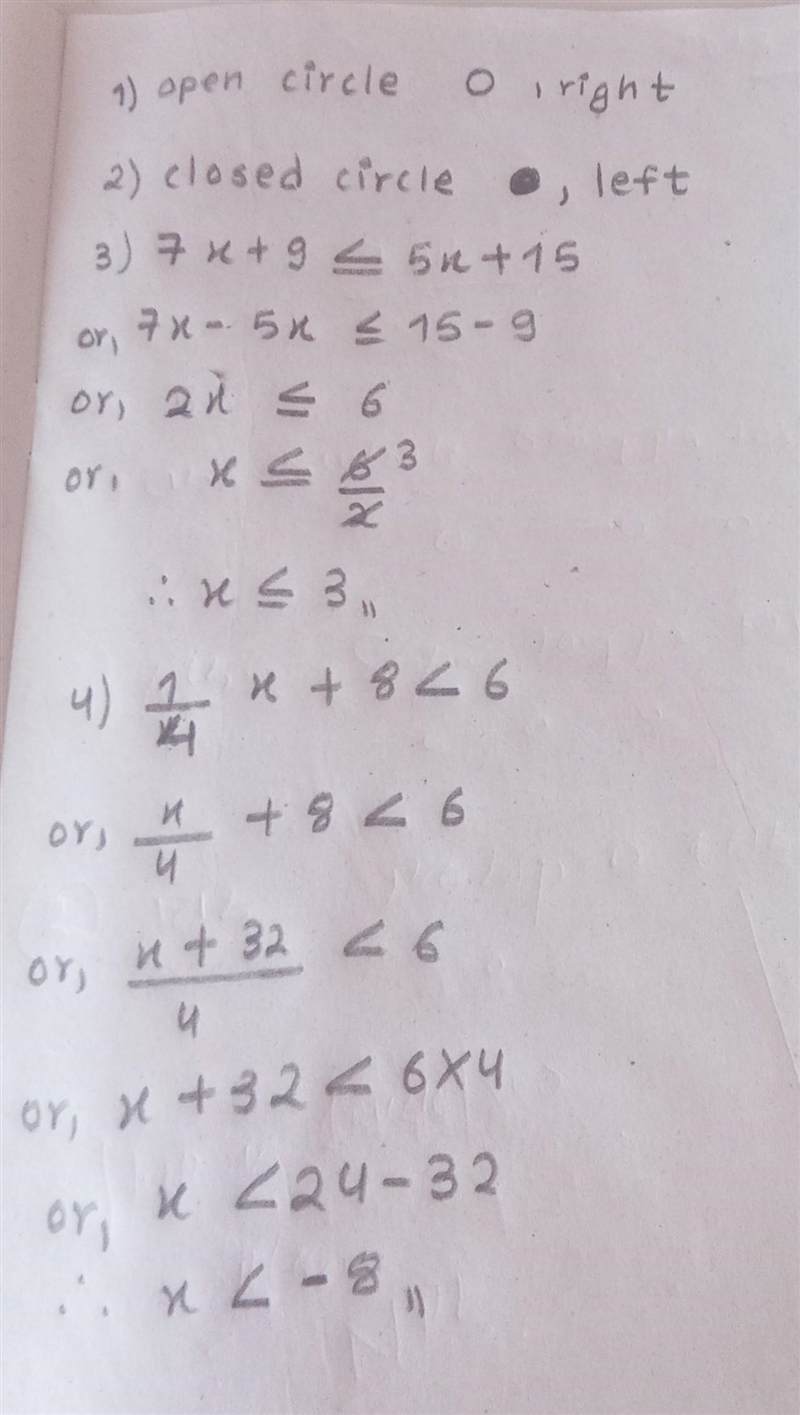 1) open circle O , right
2) closed circle ●, left
3) 7x + 9 ≤ 5x + 15
or, 7x - 5x ≤ 15 - 9
or, 2x ≤ 6
or, x ≤ 6/2 3
∴ x ≤ 3 ,,
4) 1/4 x + 8 < 6
or, x/4 + 8 < 6
or, (x + 32)/4 < 6
or, x + 32 < 6 × 4
or, x < 24 - 32
∴ x < - 8 ,,